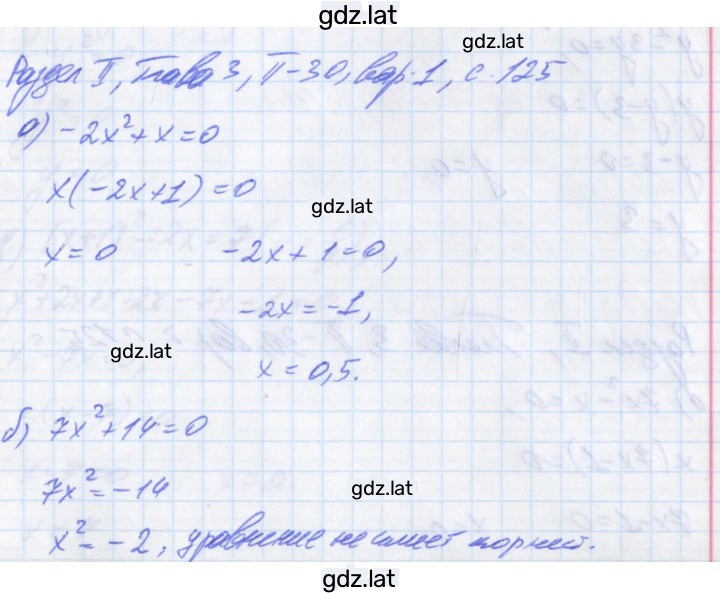 gdz.lat
gdz.lat
Раздел II, Глава 3, П-30, вар. 1, с. 125
а) -2x²+x=0
x(-2x+1)=0
gdz.lat
x=0 -2x+1=0,
-2x=-1,
gdz.lat
x=0,5.
б) 7x²+14=0
7x²=-14
gdz.lat
x²=-2, уравнение не имеет корней.
gdz.lat